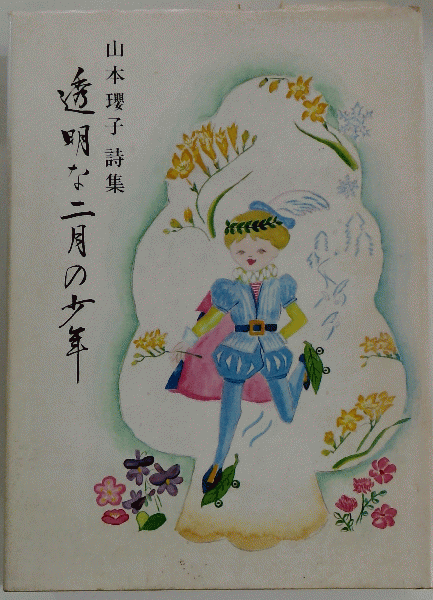 山本瓔子 詩集
透明な二月の少年